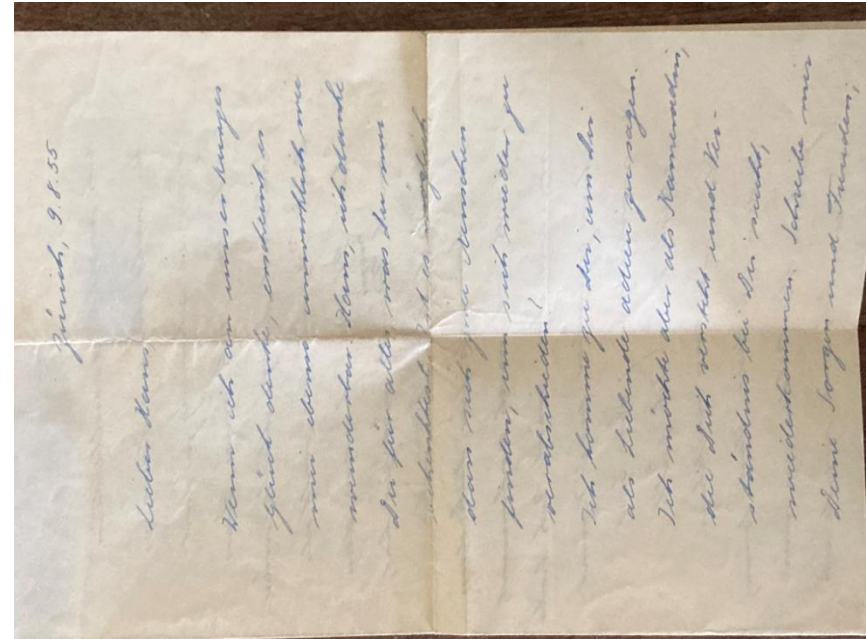 Zürich, 9.8.55
Lieber Hans,
Wenn ich an unser kurzes
Glück denke, erscheint es
mir ebenso unwirklich wie
wunderbar. Hans, ich danke
Dir für alles was Du mir
ist es möglich
dass sich zwei Menschen
finden, um sich wieder zu
verabschieden?
Ich komme zu Dir, um Dir
als Liebende adieu zu sagen.
Ich möchte aber als Kameradin,
die Dich versteht und Ver-
ständnis bei Dir sucht,
wiederkommen. Schreibe mir
Deine Sorgen und Freuden,